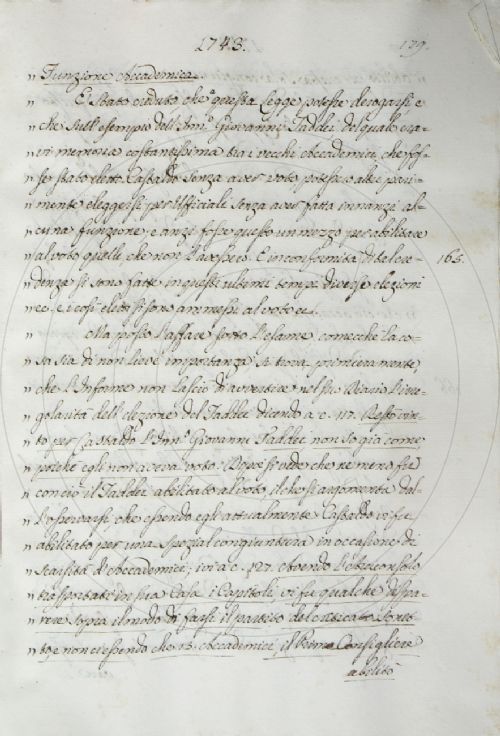 1743.
179.
" Funzione Accademica.
" È stato creduto che questa Legge potesse derogarsi e
" che sull'esempio dell'Inn.º Giovanni Taddei del quale era
" in memoria costantissima tra i vecchi Accademici, che fos-
" se stato eletto Castaldo senza aver voto potessero altri pari-
" mente eleggersi per Uffiziali senza aver fatta innanzi al-
" cuna funzione, e anzi fosse questo un mezzo per abilitare
" al voto quelli che non l'avessero. E in conformità di tal cre-
" denza si sono fatte in questi ultimi tempi diverse elezioni
165.
" Ma posto l'affare sotto l'esame comecché la co-
" sa sia di non lieve importanza si trova primieramente,
" che l'Infarine non lasciò d'avvertire nel suo Diario l'irre-
" golarità dell'elezione del Taddei dicendo a c. 117. Restò vin-
" to per Castaldo l'Inn.º Giovanni Taddei non so già come
" poiché egli non aveva voto. Di poi si vede che ne meno fu
" con ciò il Taddei abilitato al voto, il che si argomenta dal-
" l'osservarsi, che essendo egli attualmente Castaldo vi fu
" abilitato per una spezial congiuntura in occasione di
" scarsità d'Accademici; ivi a c. 127. Avendo l'Arciconsolo
" trasportato in sua Casa i Capitoli, vi fu qualche dispa-
" rere sopra il modo di farsi il partito del
" to, e non vi essendo che 13. Accademici, il Primo Consigliere
abilitò